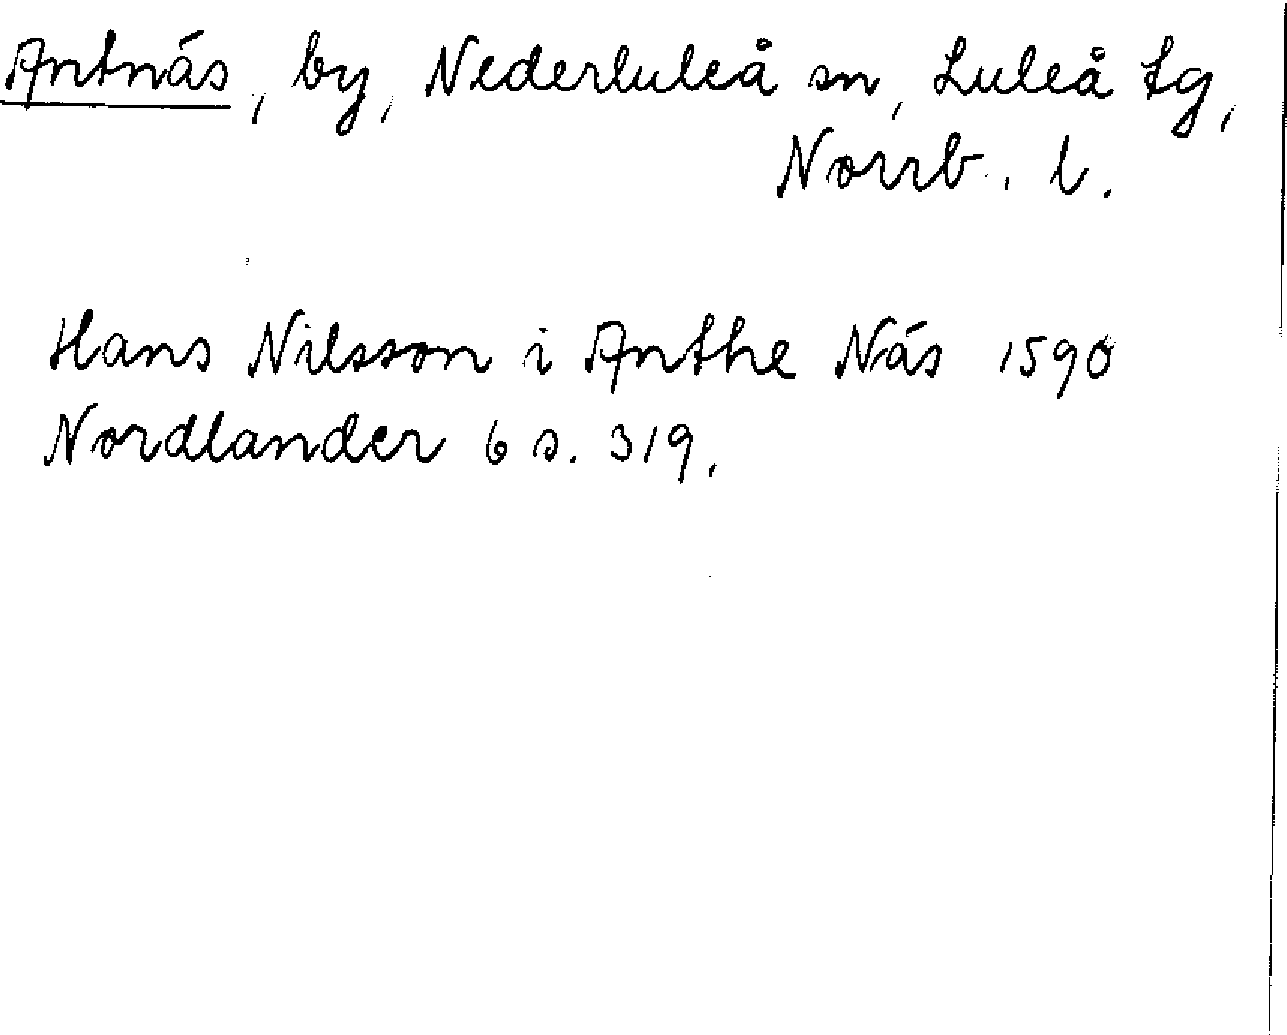 Antnäs, by, Nederluleå sn, Luleå tg,
Norrb. l.
Hans Nilsson i Anthe Näs 1590
Nordlander 6 s. 319.